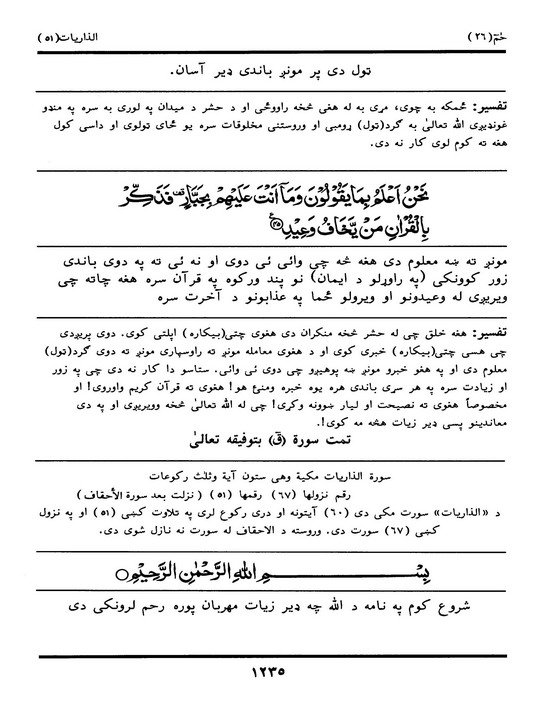 حٰمٓ (٢٦)
الذاريات (٥١)
ټول دی پر مونږ باندی ډیر آسان.
تفسیر: ځمکه به چوی، مړی به له هغی څخه راووځی او د حشر د میدان په لوری به سره په منډو
غونډیږی الله تعالیٰ به ګرد(ټول) ړومبی او وروستنی مخلوقات سره یو ځای ټولوی او داسی کول
هغه ته کوم لوی کار نه دی.
نَحْنُ اَعْلَمُ بِمَا يَقُوْلُوْنَ وَمَآ اَنْتَ عَلَيْهِمْ بِجَبَّارٍ فَذَكِّرْ
بِالْقُرْاٰنِ مَنْ يَّخَافُ وَعِيْدِ ﴿٤٥﴾
مونږ ته ښه معلوم دی هغه څه چی وائی ئی دوی او نه ئی ته په دوی باندی
زور کوونکی (په راوړلو د ایمان) نو پند ورکوه په قرآن سره هغه چاته چی
ویریږی له وعیدونو او ویرولو ځما په عذابونو د آخرت سره
تفسیر: هغه خلق چی له حشر څخه منکران دی هغوی چتی(بیکاره) اپلتی کوی. دوی پریږدی
چی هسی چتی(بیکاره) خبری کوی او د هغوی معامله مونږ ته راوسپاری مونږ ته دوی ګرد(ټول)
معلوم دی او په هغو خبرو مونږ ښه پوهیږو چی دوی ئی وائی. ستاسو دا کار نه دی چی په زور
او زیادت سره په هر سړی باندی هره یوه خبره ومنئ هو! هغوی ته قرآن کریم واوروی! او
مخصوصاً هغوی ته نصیحت او لیار ښوونه وکړی! چی له الله تعالیٰ څخه وویریږی او په دی
معاندینو پسی ډیر زیات هڅه مه کوی!.
تمت سورة (ق) بتوفیقه تعالیٰ
سورة الذاريات مكية وهى ستون آية وثلث ركوعات
رقم نزولها (٦٧) رقمها (٥١) (نزلت بعد سورة الأحقاف)
د «الذاریات» سورت مکی دی (٦٠) آیتونه او دری رکوع لری په تلاوت کښی (٥١) او په نزول
کښی (٦٧) سورت دی. وروسته د الاحقاف له سورت نه نازل شوی دی.
بِسْــــــمِ اللّٰهِ الرَّحْمٰنِ الرَّحِيْمِ ○
شروع کوم په نامه د الله چه ډیر زیات مهربان پوره رحم لرونکی دی
١٢٣٥